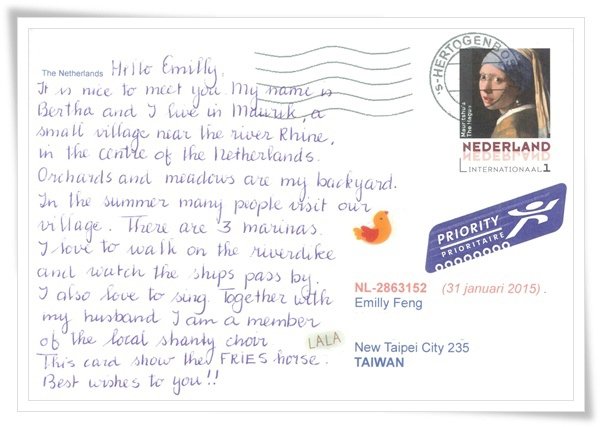 The Netherlands
Hello Emilly.
It is nice to meet you. My name is
Bertha and I live in Maurik, a
small village near the river Rhine,
in the centre of the Netherlands.
Orchards and meadows are my backyard.
In the summer many people visit our
village. There are 3 marinas.
I love to walk on the riverdike
and watch the ships pass by.
I also love to sing. Together with
my husband I am a member
of the local shanty choir
LALA
This card show the FRIES horse.
Best wishes to you!!
's-HERTOGENBOS
Mauritshuis
The Hague
NEDERLAND
NEDERLAND
INTERNATIONAAL 1
PRIORITY
PRIORITAIRE
NL-2863152 (31 januari 2015).
Emilly Feng
New Taipei City 235
TAIWAN